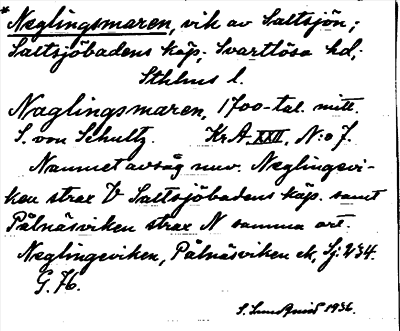 * Neglingsmaren, vik av Saltsjön;
Saltsjöbadens köp, Svartlösa hd,
Sthlms l.
Naglingsmaren, 1700-tal. mitt.
S. von Schultz. Kr. A. XXII, N:o 7.
Namnet avsåg nuv. Neglingevi-
ken strax V Saltsjöbadens köp. samt
Pålnäsviken strax N samma ort.
Neglingeviken, Pålnäsviken ek, Sj. 234.
G. 76.
S. Lundquist 1936.